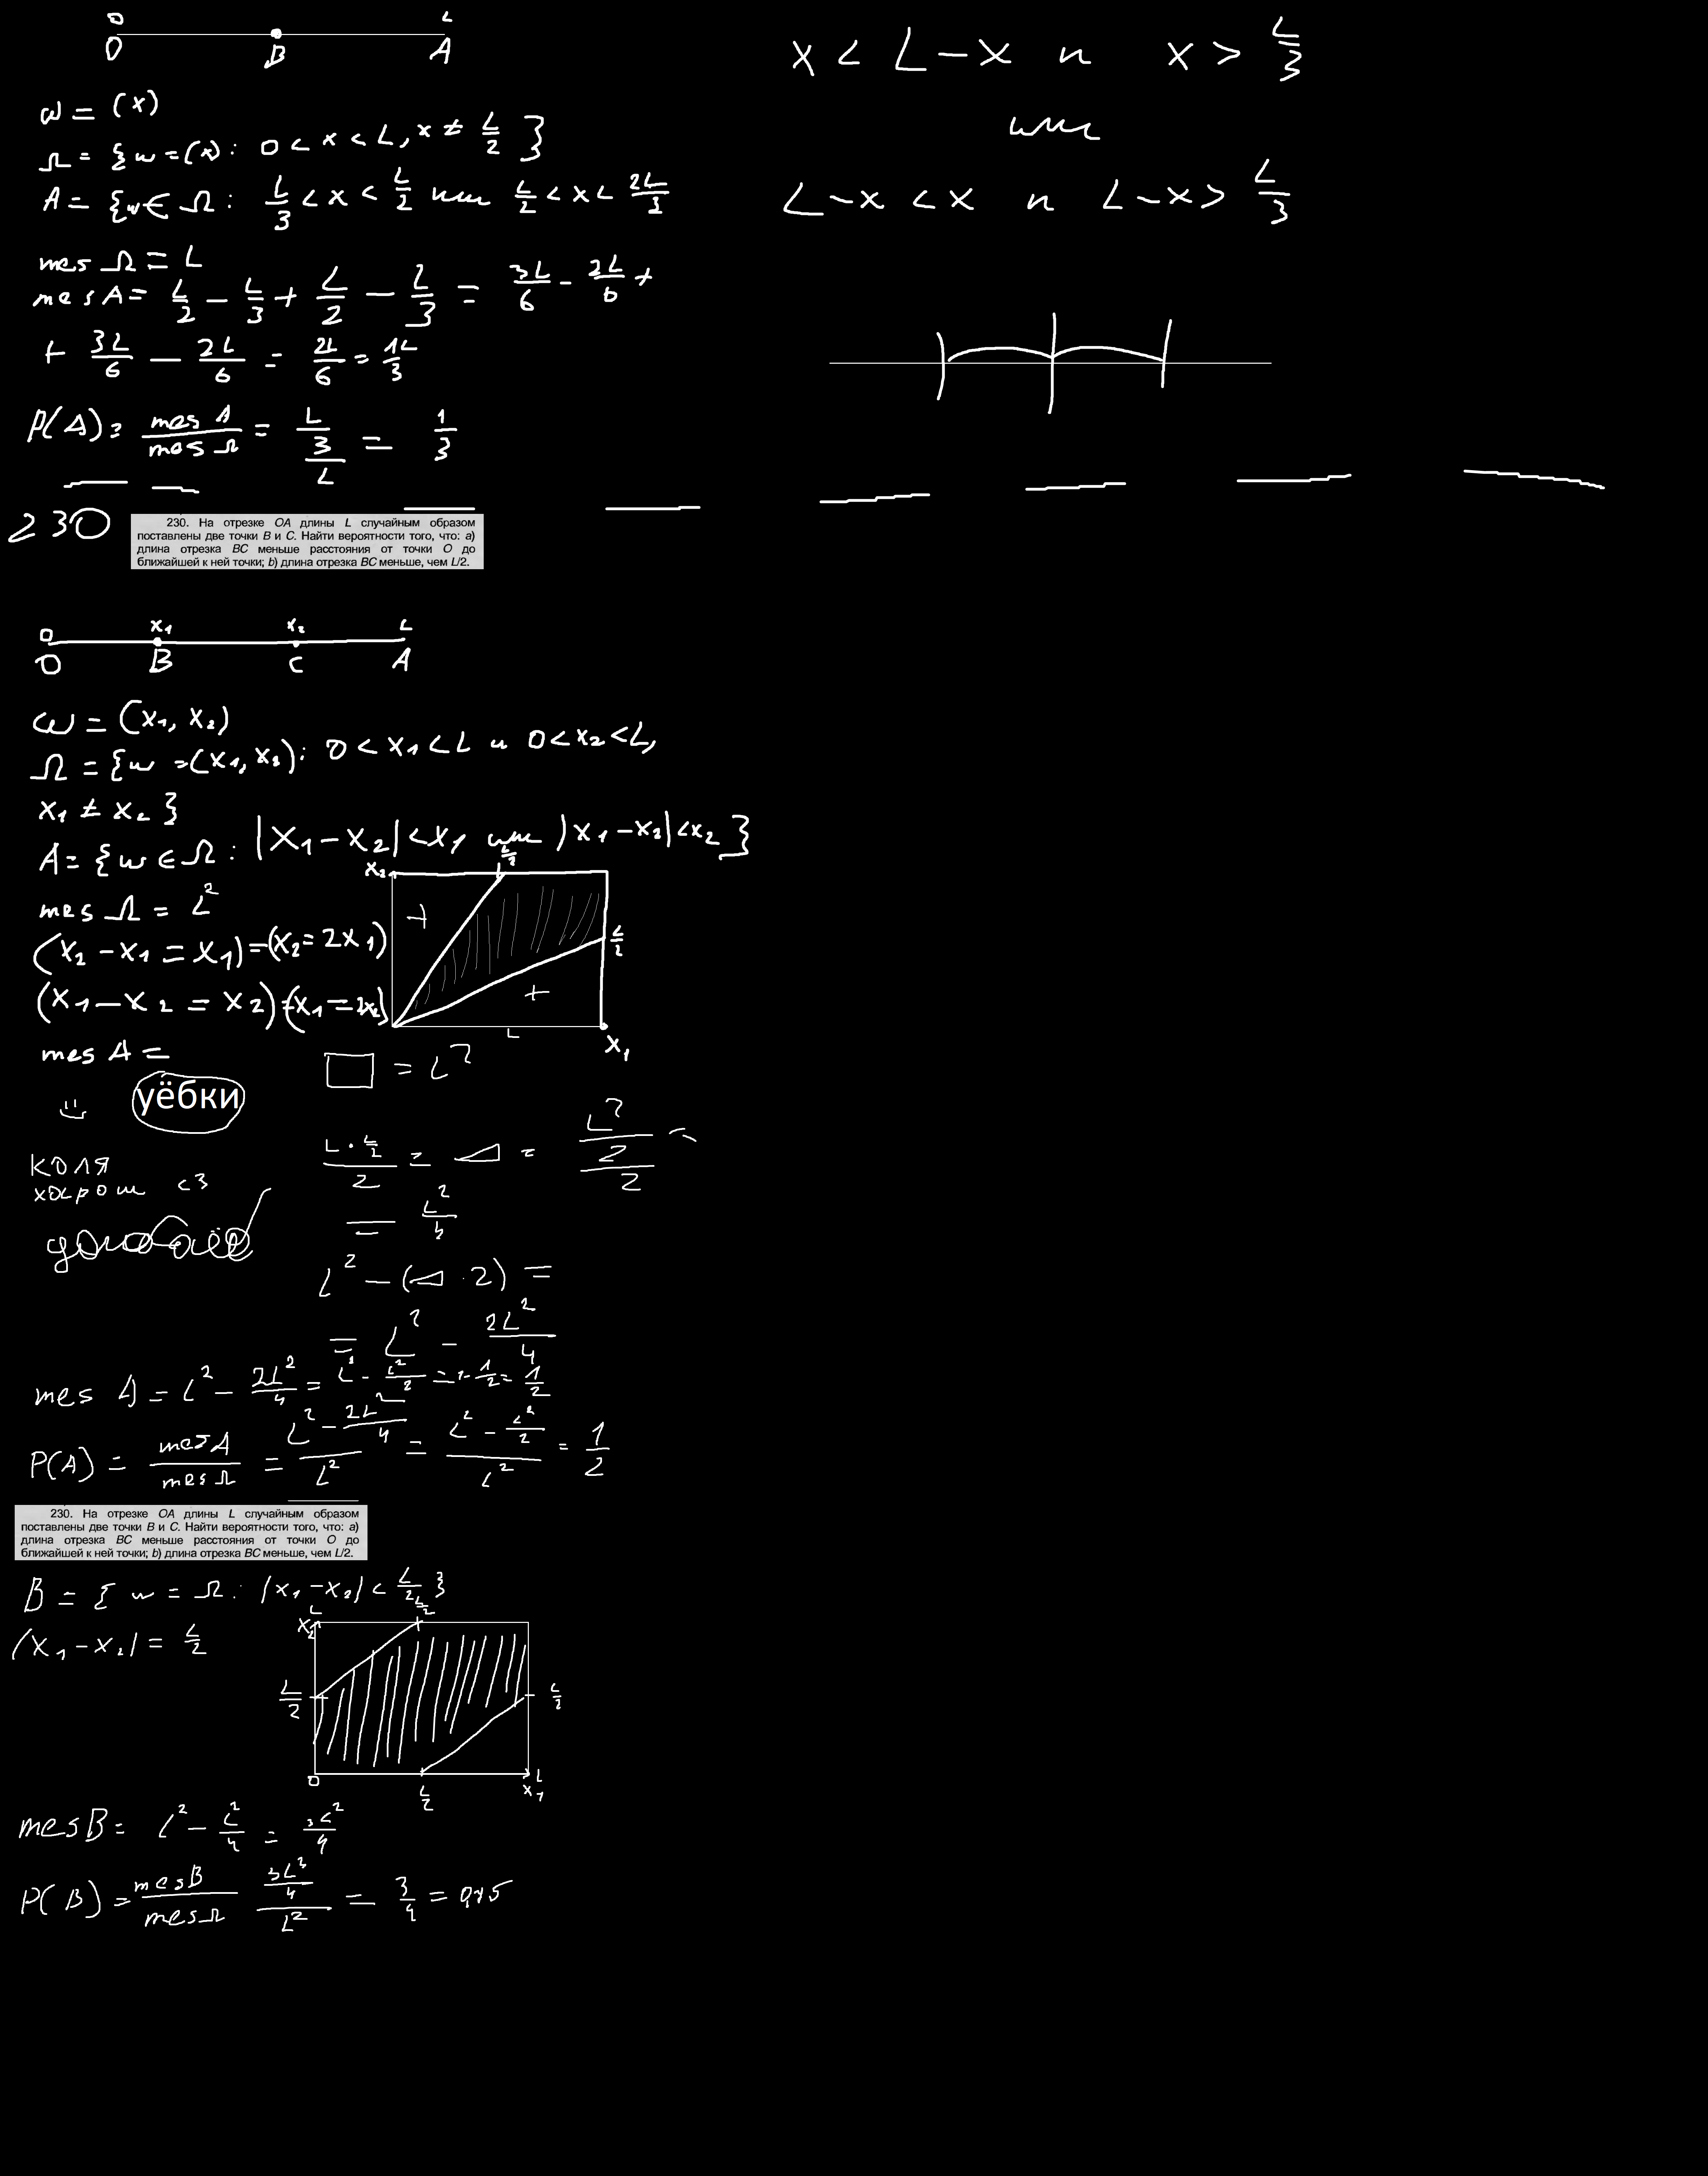 0 L
O B A
ω = (x)
Ω = {ω = (x): 0 < x < L, x ≠ L/2 }
A = {ω ∈ Ω: L/3 < x < L/2 или L/2 < x < 2L/3
mes Ω = L
mes A = L/2 - L/3 + L/2 - L/3 = 3L/6 - 2L/6 +
+ 3L/6 - 2L/6 = 2L/6 = 1L/3
P(A) = mes A/mes Ω = L/3/L = 1/3
x < L - x и x > L/3
или
L - x < x и L - x > L/3
230
230. На отрезке OA длины L случайным образом
поставлены две точки B и C. Найти вероятности того, что: a)
длина отрезка BC меньше расстояния от точки O до
ближайшей к ней точки; b) длина отрезка BC меньше, чем L/2.
0 x₁ x₂ L
O B C A
ω = (x₁, x₂)
Ω = {ω = (x₁, x₂): 0 < x₁ < L и 0 < x₂ < L,
x₁ ≠ x₂ }
A = {ω ∈ Ω: |x₁ - x₂| < x₁ или |x₁ - x₂| < x₂ }
mes Ω = L²
(x₂ - x₁ = x₁) = (x₂ = 2x₁)
(x₁ - x₂ = x₂) = (x₁ = 2x₂)
mes A =
x₂ L/2
+
L/2
+
L x₁
уёбки
КОЛЯ
хорош <3
= L²
L · L/2/2 = = L²/2/2 =
= L²/4
L² - ( · 2) =
= L² - 2L²/4
mes A = L² - 2L²/4 = L² - L²/2 = 1 - 1/2 = 1/2
P(A) = mes A/mes Ω = L² - 2L²/4/L² = L² - L²/2/L² = 1/2
230. На отрезке OA длины L случайным образом
поставлены две точки B и C. Найти вероятности того, что: a)
длина отрезка BC меньше расстояния от точки O до
ближайшей к ней точки; b) длина отрезка BC меньше, чем L/2.
B = { ω = Ω: |x₁ - x₂| < L/2 }
|x₁ - x₂| = L/2
x₂ L L/2
L/2 L/2
0 L/2 L x₁
mes B = L² - L²/4 = 3L²/4
P(B) = mes B/mes Ω 3L²/4/L² = 3/4 = 0,75